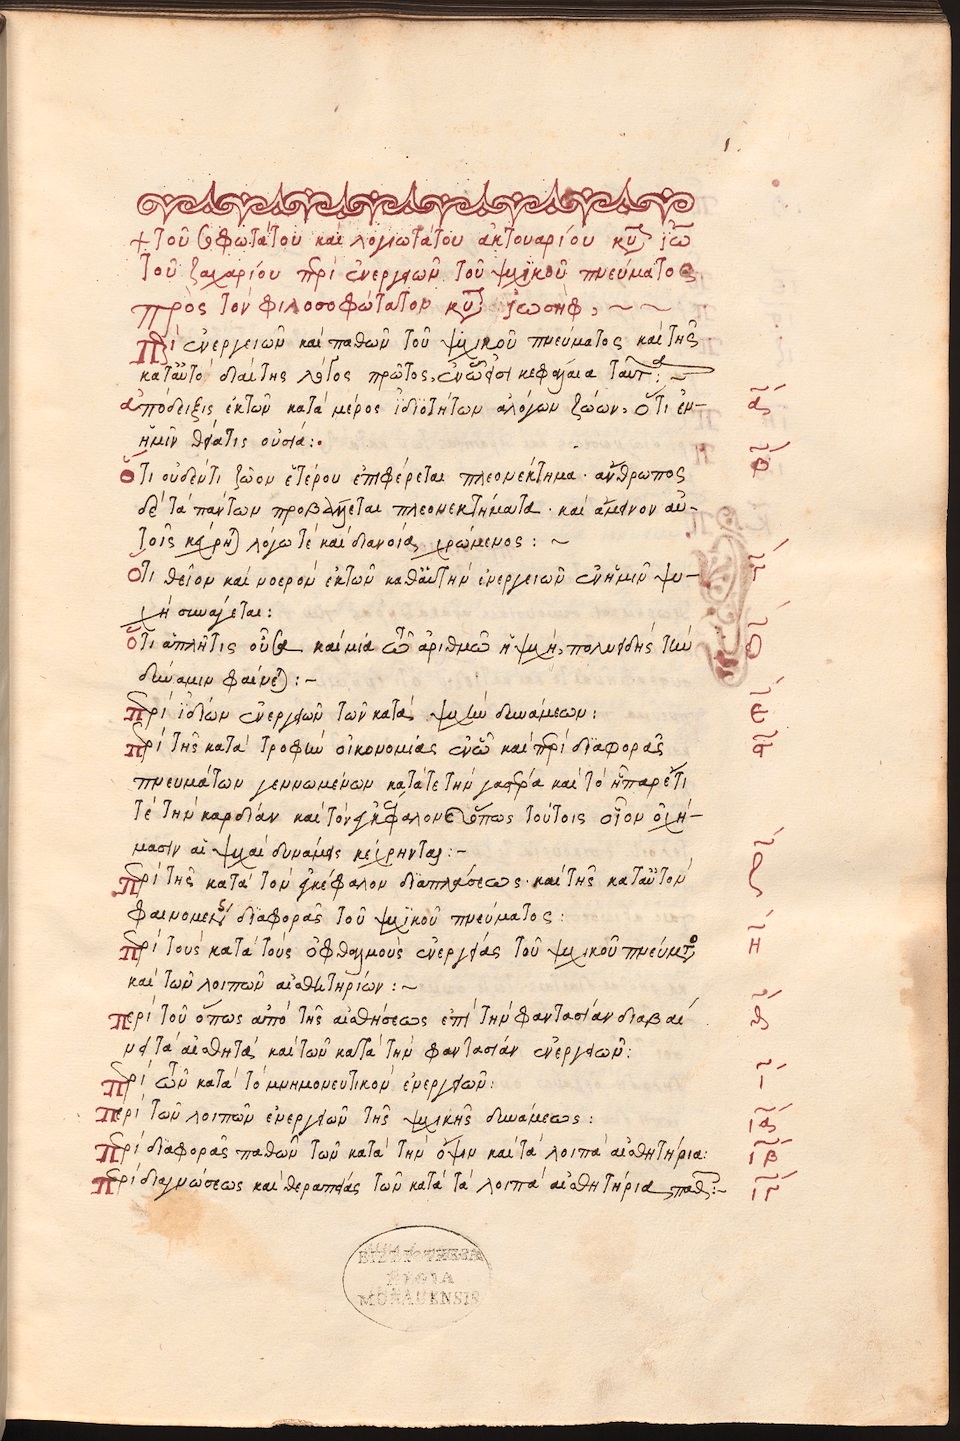 1.
+ τοῦ σοφωτάτου καὶ λογιωτάτου ἀκτουαρίου κυροῦ ἰω
τοῦ ζαχαρίου περὶ ἐνεργειῶν τοῦ ψυχικοῦ πνεύματος
πρὸς τὸν φιλοσοφώτατον κυρ ἰωσήφ, ~ ~
Περὶ ἐνεργειῶν καὶ παθῶν τοῦ ψυχικοῦ πνεύματος καὶ τῆς
κατ' αὐτὸ διαίτης λόγος πρῶτος, ἐν ᾧ κεφάλαια ταῦτα : ~
ἀπόδειξις ἐκ τῶν κατὰ μέρος ἰδιοτήτων ἀλόγων ζώων, ὅτι ἐν- α
ἡμῖν θεία τις οὐσία : .
Ὅτι οὐδέν τι ζῶον ἑτέρου ἐπιφέρεται πλεονέκτημα · ἄνθρωπος β
δὲ τὰ πάντων προβάλλεται πλεονεκτήματα · καὶ ἄμεινον αὐ-
τοῖς λόγω τὲ καὶ διανοία, χρώμενος : ~
Ὅτι θεῖον καὶ νοερὸν ἐκ τῶν καθ' αὑτὴν ἐνεργειῶν ἐν ἡμῖν ψυ- γ
χὴ συνάγεται :
Ὅτι ἁπλῆ τις οὖσα καὶ μία τῶ ἀριθμῶ ἡ ψυχὴ, πολυειδὴς τὴν δ
δύναμιν φαίνεται : ~
Περὶ ἰδίων ἐνεργειῶν τῶν κατὰ ψυχὴν δυνάμεων : ε
Περὶ τῆς κατὰ τροφὴν οἰκονομίας ἐν ᾧ καὶ περὶ διαφορᾶς ς
πνευμάτων γεννωμένων κατά τε τὴν γαστέρα καὶ τὸ ἧπαρ ἔτι
τὲ τὴν καρδίαν καὶ τὸν ἐγκέφαλον ὅπως τούτοις οἷον ὀχή-
μασιν αἱ ψυχικαὶ δυνάμεις κέχρηνται : ~
Περὶ τῆς κατὰ τὸν ἐγκέφαλον διαπλάσεως · καὶ τῆς κατ' αὐτὸν ζ
φαινομένης διαφορᾶς τοῦ ψυχικοῦ πνεύματος :
Περὶ τοὺς κατὰ τοὺς ὀφθαλμοὺς ἐνεργείας τοῦ ψυχικοῦ πνεύματος η
καὶ τῶν λοιπῶν αἰσθητηρίων : ~
Περὶ τοῦ ὅπως ἀπὸ τῆς αἰσθήσεως ἐπὶ τὴν φαντασίαν διαβαί θ
νει τὰ αἰσθητὰ καὶ τῶν κατὰ τὴν φαντασίαν ἐνεργειῶν :
Περὶ τῶν κατὰ τὸ μνημονευτικὸν ἐνεργειῶν : ι
Περὶ τῶν λοιπῶν ἐνεργειῶν τῆς ψυχικῆς δυνάμεως : ια
Περὶ διαφορᾶς παθῶν τῶν κατὰ τὴν ὄψιν καὶ τὰ λοιπὰ αἰσθητήρια : ιβ
Περὶ διαγνώσεως καὶ θεραπείας τῶν κατὰ τὰ λοιπὰ αἰσθητήρια παθῶν : ~ ιγ
BIBLIOTHECA
REGIA
MONACENSIS